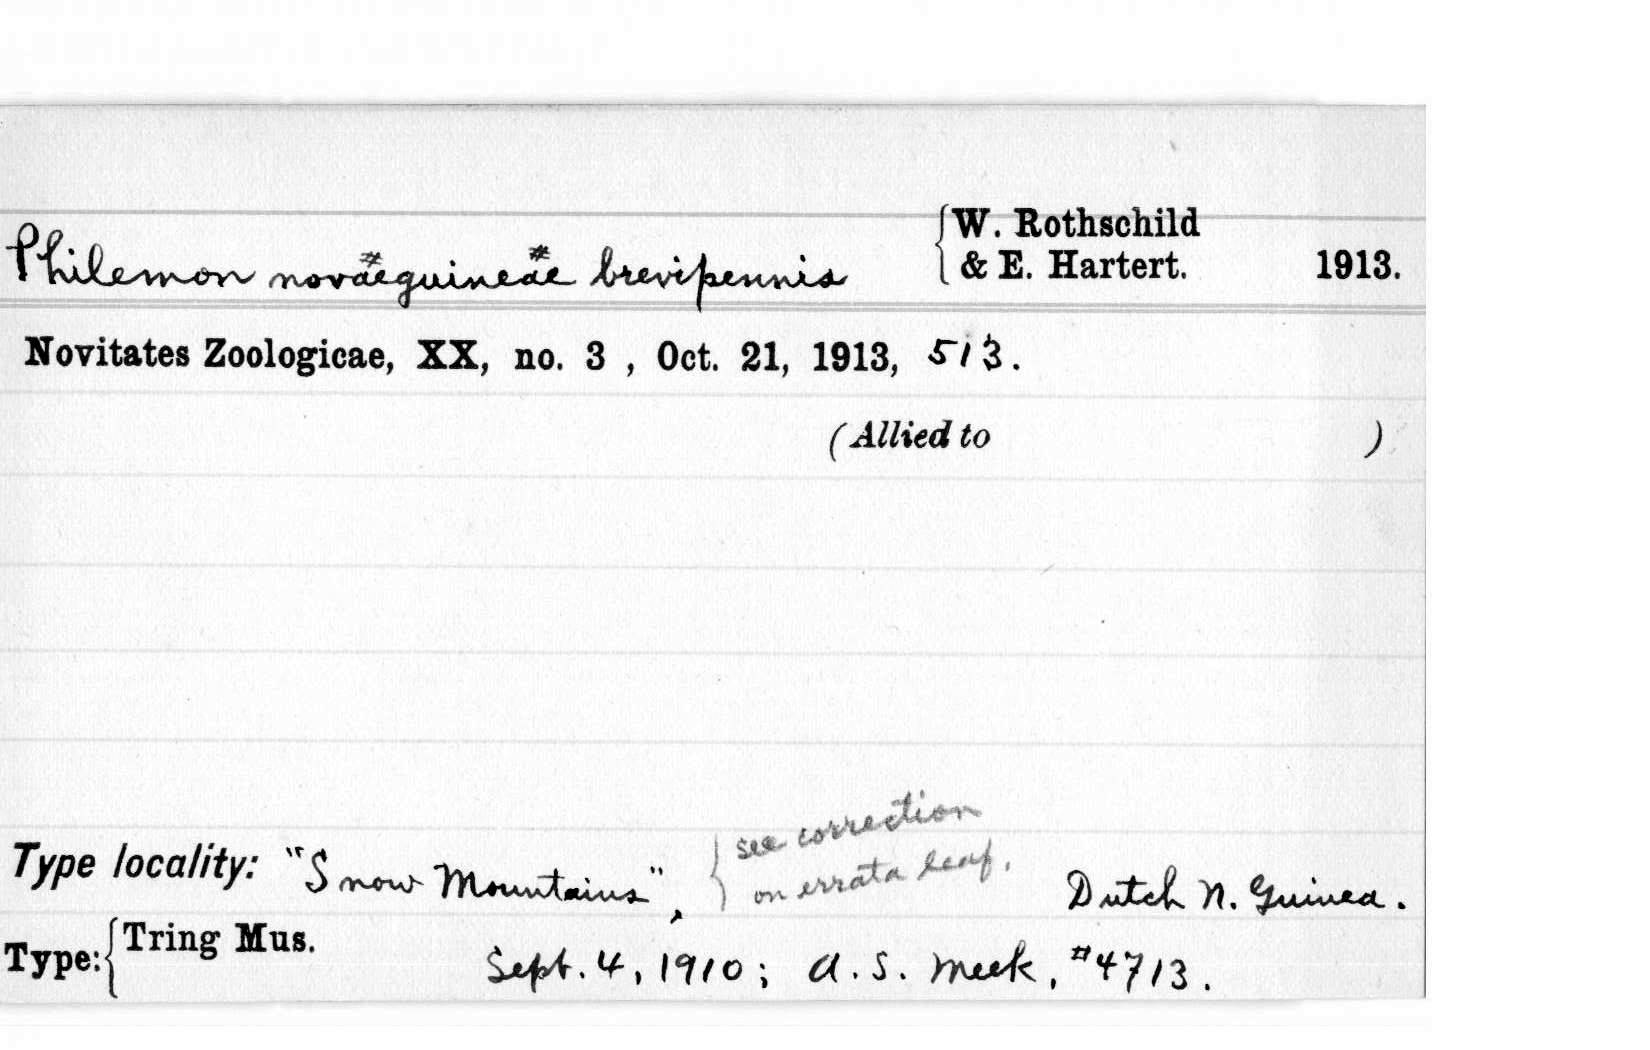 Philemon novaeguineae brevipennis { W. Rothschild & E. Hartert. 1913.
Novitates Zoologicae, XX, no. 3 , Oct. 21, 1913, 513.
(Allied to )
{ see correction
on errata leaf.
Type locality: "Snow Mountains", Dutch N. Guinea.
Type: { Tring Mus.
Sept. 4, 1910; A. S. Meek, #4713.